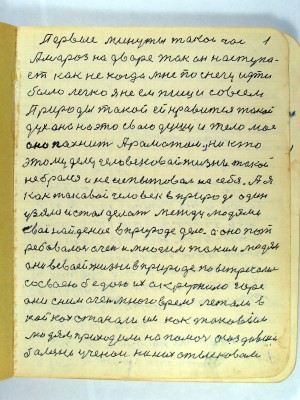 Первые минуты такой час 1
Амароз на дваре так он наступа-
ет как не когда мне по снегу идти
было легко я не ем пищи совсем
Природы такой ей нравится такой
дух она на это сваю душу и тело мае
оно пахнит Араматом, ни кто
этому делу человек овай жизни такой
не брался и не испытовал на себя. А я
как такавой человек в природе один
узял и стал делать между людями
сваё найденое в природе дело. а оно пот
ребовалос очен и многим таким людям
они в сваей жизне в природе повстречалис
со сваею бедою их окружило горе
они с ним очен много время
как таковым
людям приходили на помоч
балшие ученои на них